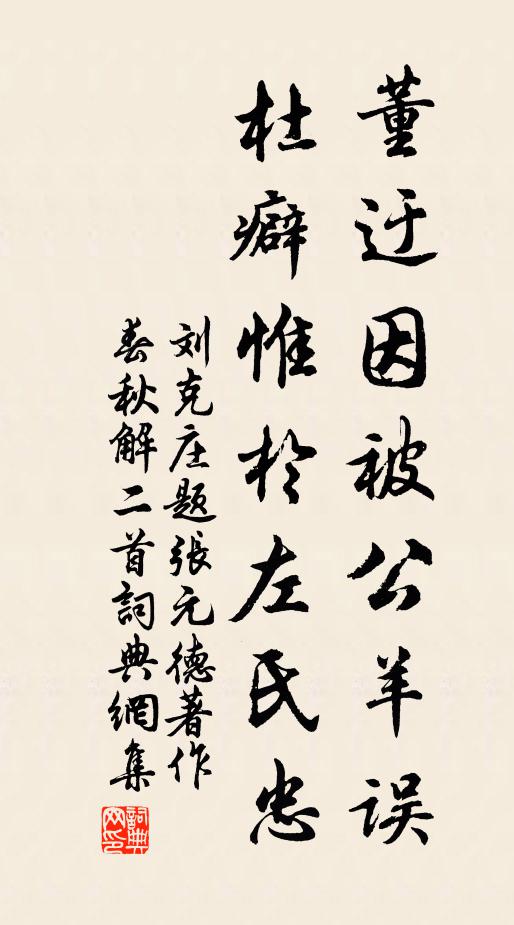 董迂因被公羊误
杜癖惟於左民忠
刘克庄题張元德著作
春秋解二首詞典網集
詞典网印